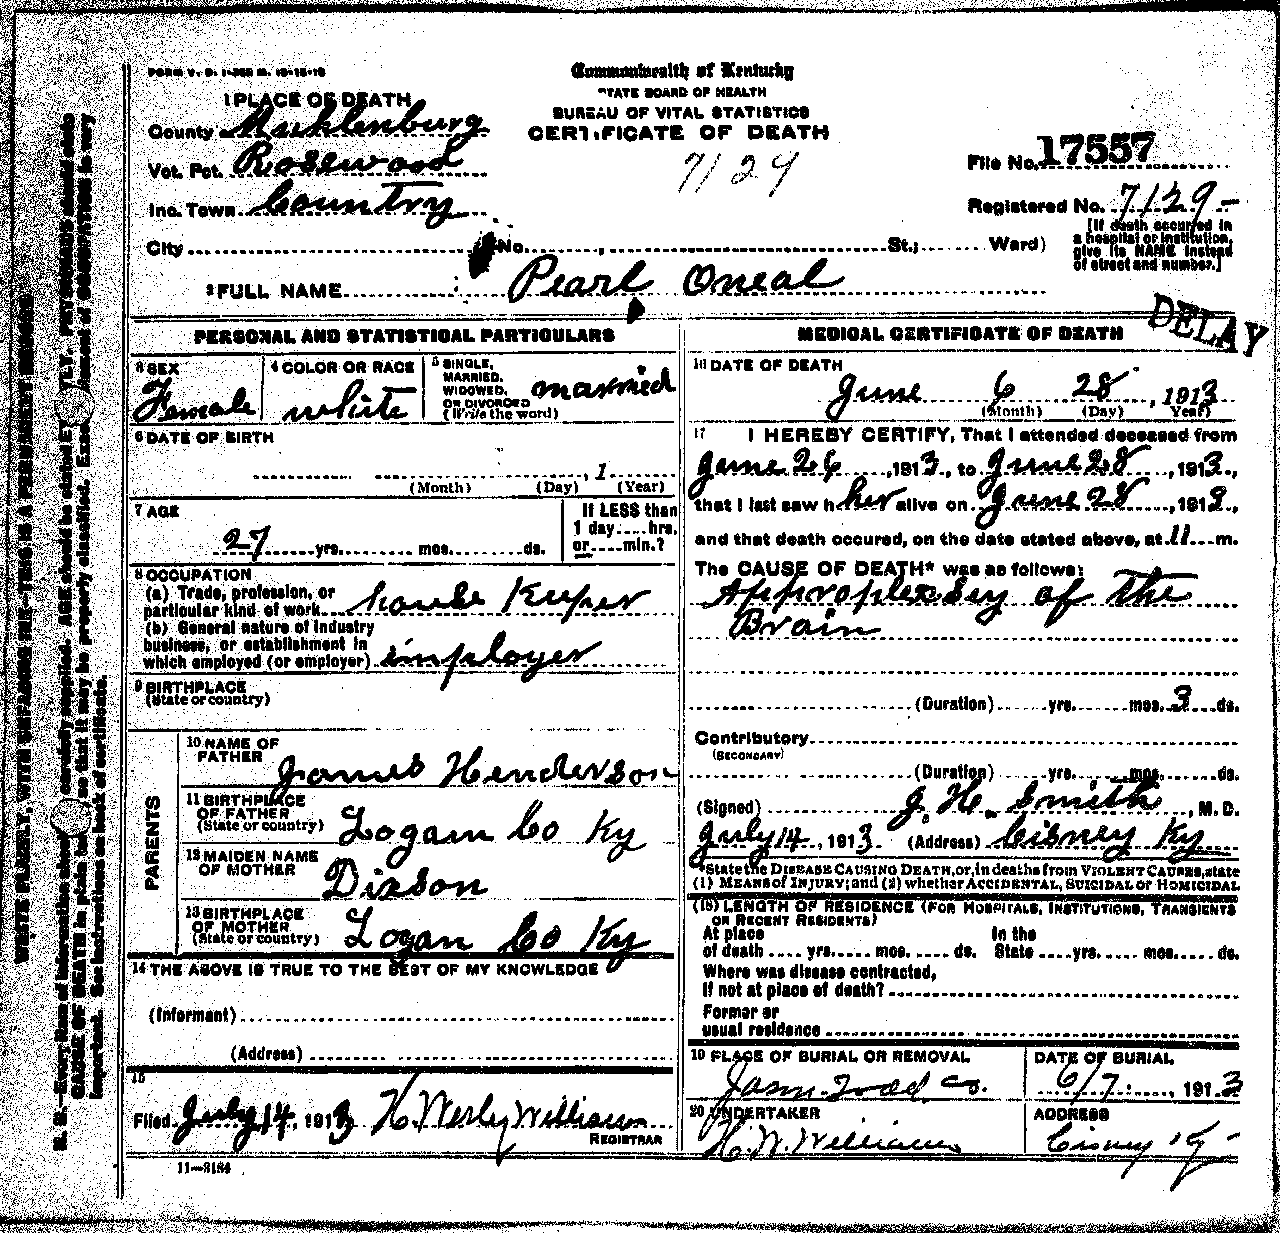 FORM V. S. 1-
Commonwealth of Kentucky
STATE BOARD OF HEALTH
BUREAU OF VITAL STATISTICS
CERTIFICATE OF DEATH
7129
1 PLACE OF DEATH
County Muhlenburg
Vot. Pct. Rosewood
Inc. Town Country
City
No. , St.; Ward)
File No. 17557
Registered No. 7129-
[If death occurred in
a hospital or institution,
give its NAME instead
of street and number.]
2 FULL NAME Pearl Oneal
DELAY
PERSONAL AND STATISTICAL PARTICULARS
3 SEX
Female
4 COLOR OR RACE
white
5 SINGLE,
MARRIED,
WIDOWED,
OR DIVORCED
(Write the word)
married
6 DATE OF BIRTH
, 1
(Month) (Day) (Year)
7 AGE
27 yrs. mos. ds.
If LESS than
1 day .... hrs.
or .... min.?
8 OCCUPATION
(a) Trade, profession, or
particular kind of work house Keeper
(b) General nature of industry
business, or establishment in
which employed (or employer) imployer
9 BIRTHPLACE
(State or country)
PARENTS
10 NAME OF
FATHER James Henderson
11 BIRTHPLACE
OF FATHER
(State or country) Logan Co Ky
12 MAIDEN NAME
OF MOTHER Dixson
13 BIRTHPLACE
OF MOTHER
(State or country) Logan Co Ky
14 THE ABOVE IS TRUE TO THE BEST OF MY KNOWLEDGE
(Informant)
(Address)
15
Filed July 14, 1913 H. Wesly Williams
REGISTRAR
11-3184
MEDICAL CERTIFICATE OF DEATH
16 DATE OF DEATH
June 6 28 , 1913
(Month) (Day) Year)
17 I HEREBY CERTIFY, That I attended deceased from
June 26 , 1913., to June 28 , 1913.,
that I last saw her alive on June 28 , 1913,
and that death occured, on the date stated above, at 11 m.
The CAUSE OF DEATH* was as follows:
Approplexsy of the
Brain
(Duration) yrs. mos. 3 ds.
Contributory
(SECONDARY)
(Duration) yrs. mos. ds.
(Signed) J. H. Smith , M. D.
July 14, 1913 (Address) Cisney Ky
*State the DISEASE CAUSING DEATH, or, in deaths from VIOLENT CAUSES, state
(1) MEANS of INJURY; and (2) whether ACCIDENTAL, SUICIDAL or HOMICIDAL
(18) LENGTH OF RESIDENCE (FOR HOSPITALS, INSTITUTIONS, TRANSIENTS
OR RECENT RESIDENTS)
At place In the
of death .... yrs. mos. ds. State .... yrs. mos. ds.
Where was disease contracted,
If not at place of death?
Former or
usual residence
19 PLACE OF BURIAL OR REMOVAL
Todd Co.
DATE OF BURIAL
6/7 , 1913
20 UNDERTAKER
H. W. Williams
ADDRESS
Cisney Ky -
WRITE PLAINLY, WITH UNFADING INK—THIS IS A PERMANENT RECORD
N. B.—Every item of information should carefully supplied. AGE should be stated EXACTLY. PHYSICIANS should state
CAUSE OF DEATH in plain so that it may be properly classified. Exact statement of OCCUPATION is very
important. See instructions on back of certificate.